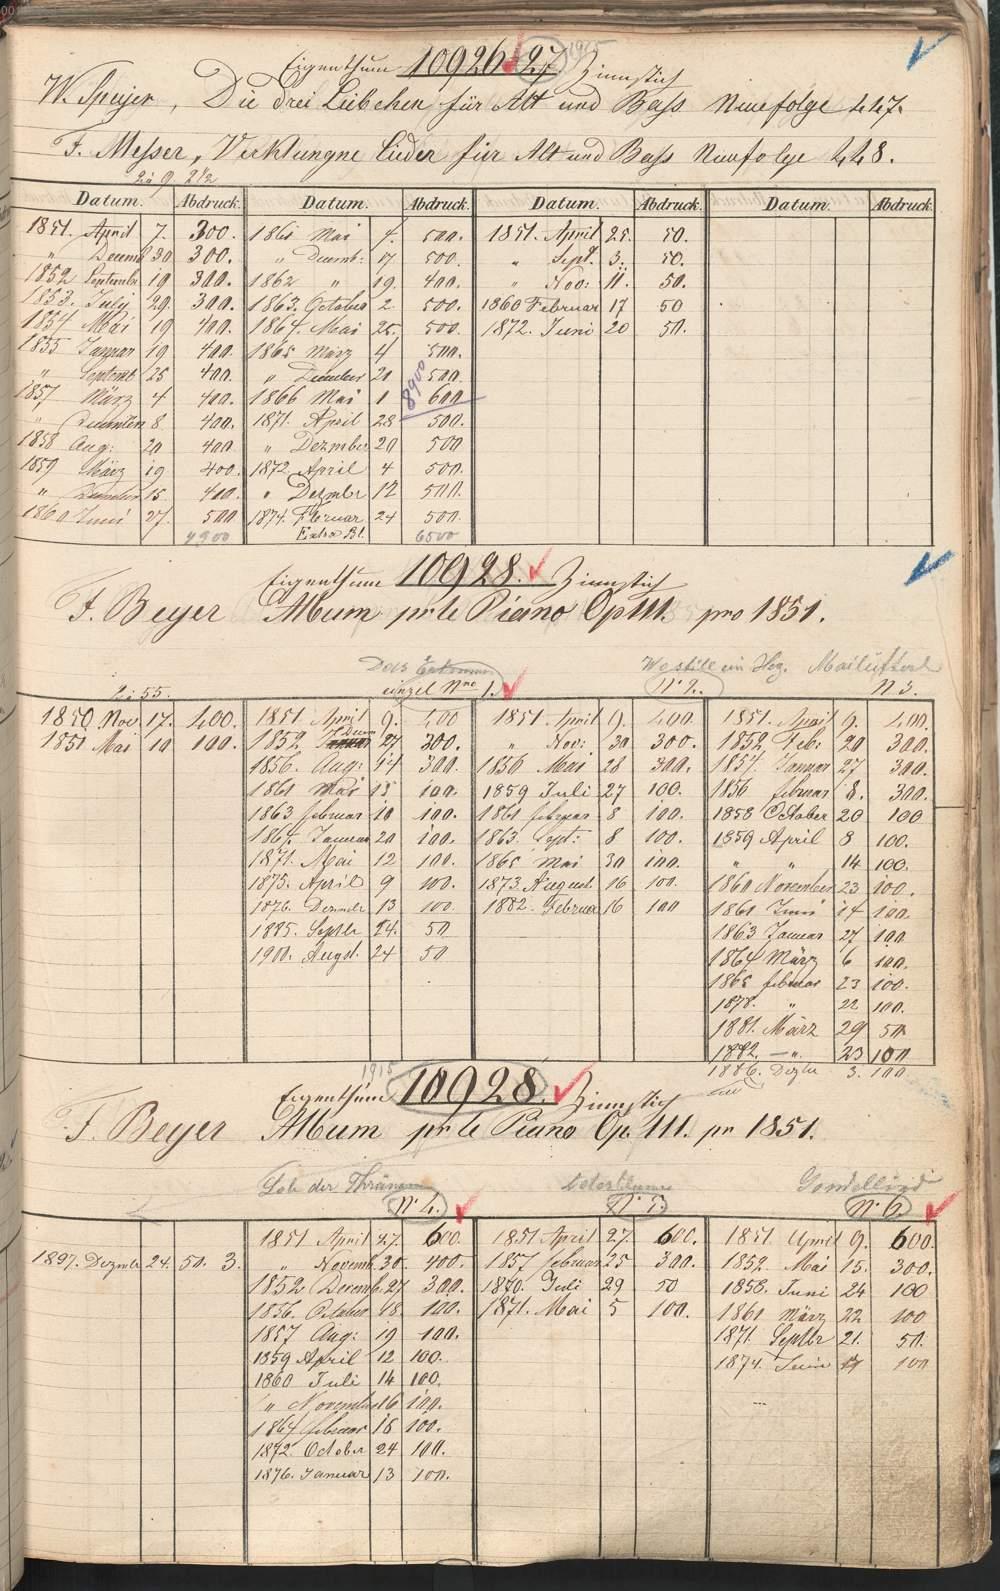 Eigenthum 10926. 27 1915 Zinnstich
W. Speyer, Die drei Liebchen für Alt und Bass Neuefolge 447.
F. Messer, Verklungne Lieder für Alt und Bass Neuefolge 448.
Datum. Abdruck. Datum. Abdruck. Datum. Abdruck. Datum. Abdruck.
1851. April 7. 300. 1861 Mai 7. 500. 1851. April 25. 50.
" Decemb 30 300. " Decemb: 17 500. " Sept. 3. 50.
1852 Septembr 19 300. 1862 " 19. 400. " Nov: 11. 50.
1853. July 29. 300. 1863. October 2 500. 1860 Februar 17 50
1854 Mai 19 400. 1864. Mai 25. 500. 1872. Juni 20 50.
1855 Januar 19 400. 1865 März 4 500.
" Septemb 25 400. " December 20 500.
1857 März 4 400. 1866 Mai 1 600
8900
" December 8 400. 1871. April 28 500.
1858 Aug: 20 400 " Dezember 20 500
1859 März 19 400. 1872 April 4 500.
" December 15. 400. " Dezmbr 12 500.
1860 Juni 27. 500 1874. Februar 24 500.
4900 Extra Bl. 6500
Eigenthum 10928. Zinnstich
F. Beyer Album pr le Piano Op 111. pro 1851.
Das Erkennen Wo still ein Herz. Mailüfterl
einzel Nro 1. No 2. N 3.
1850 Nov 17. 400. 1851 April 9. 400 1851 April 9. 400. 1851. April 9. 400.
1851 Mai 10 100. 1852 Decem 27 300. " Nov: 30 300. 1852. Feb: 20 300.
1856. Aug: 14 300. 1856 Mai 28 300. 1854. Januar 27 300.
1861 Mai 15 100. 1859 Juli 27 100. 1856 Februar 8. 300.
1863 Februar 10 100. 1861 Februar 8 100. 1858 October 20 100
1867. Januar 20 100. 1863. Sept: 8 100. 1859 April 8 100.
1871. Mai 12 100. 1865 Mai 30 100. " " 14 100.
1875. April 9 100. 1873. August. 16 100. 1860 November 23 100.
1876. Dezmbr 13 100 1882. Februar 16 100 1861 Juni 14 100.
1885. Septbr 24. 50 1863 Januar 27 100
1900. August. 24 50 1864 März 6 100.
1865 Februar 23 100.
1878. " 22 100.
1881. März 29 50.
1882. — " 23 100
1886. Dezbr 3. 100
1915
Eigenthum 10928. Zinnstich
F. Beyer Album pr le Piano Op. 111. pr 1851.
Lob der Thränen Gondellied
No 4. No 5 No 6.
1851 April 27. 600. 1851 April 27. 600. 1851. April 9. 600.
1897. Dezmbr 24. 50. 3. " Novemb. 30. 400. 1857 Februar 25 300. 1852. Mai 15. 300.
1852 Decemb. 27 300. 1870. Juli 29 50 1858. Juni 24 100
1856. October 18. 100. 1871. Mai 5 100. 1861 März 22 100
1857 Aug: 19 100. 1871. Septbr 21. 50.
1859 April 12 100. 1874. Juni 100
1860 Juli 14 100.
" November 16 100.
1864 Februar 16 100.
1872. October 24 100.
1876. Januar 13 100.